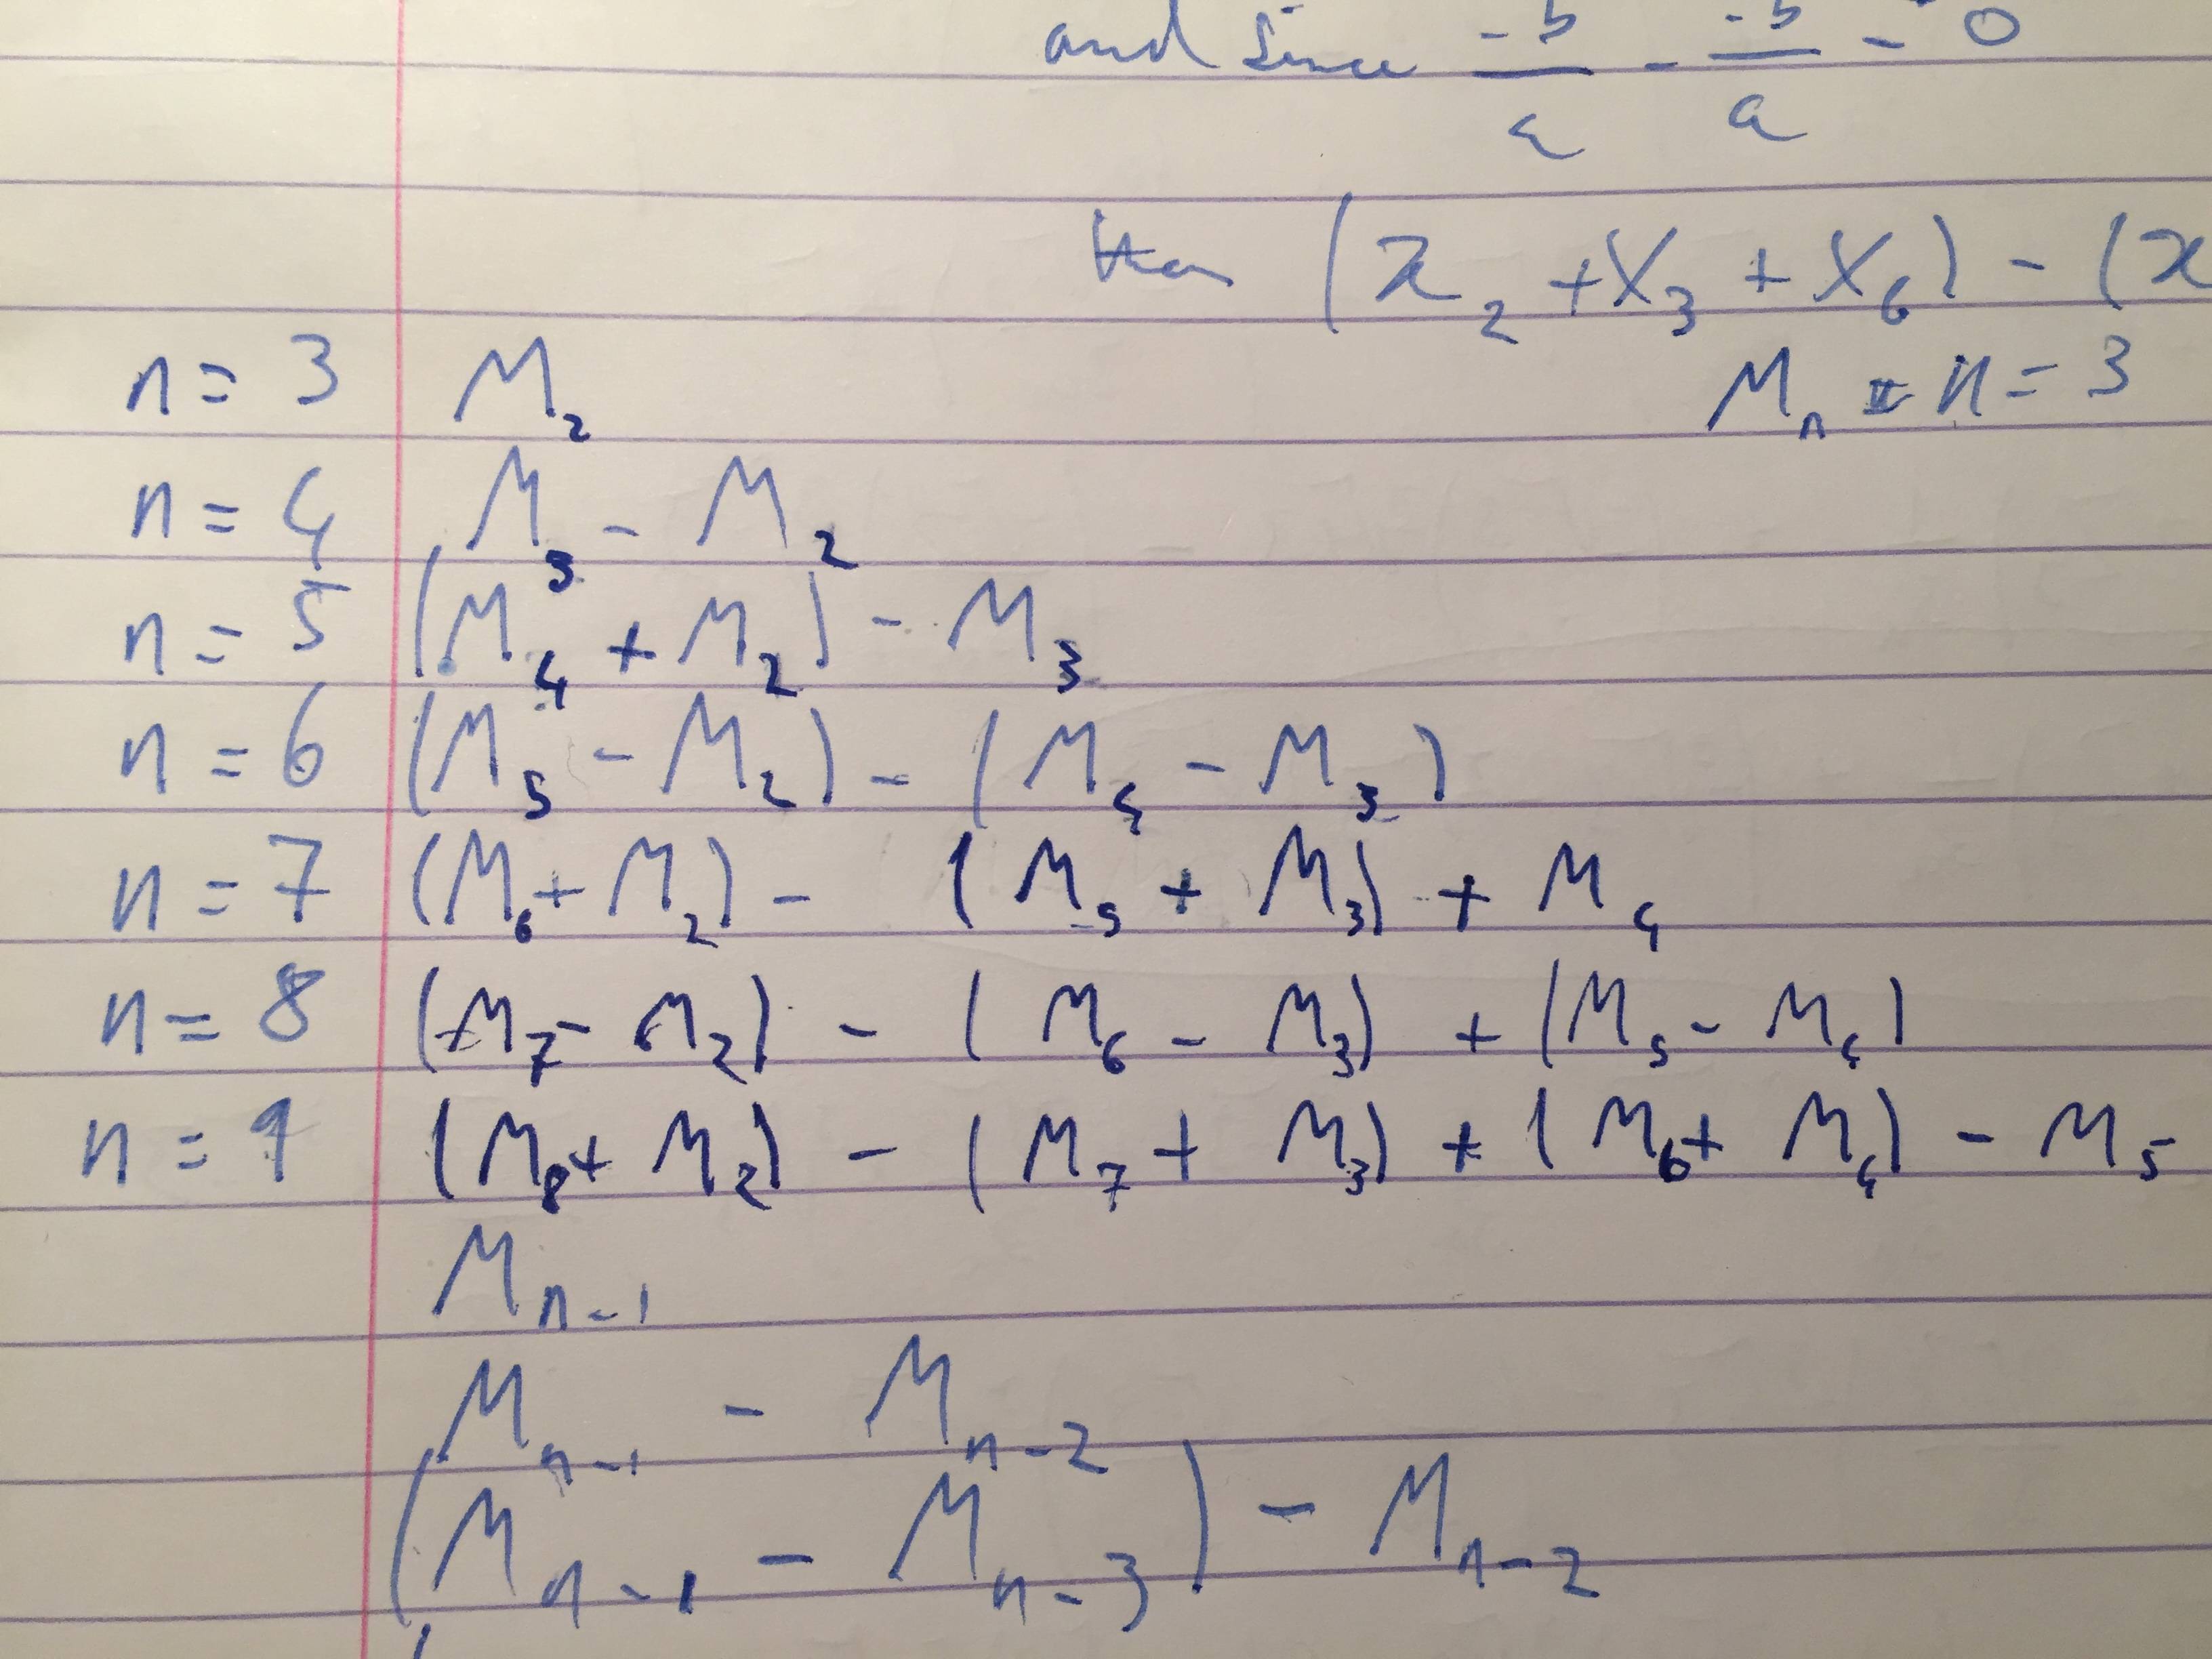 and since -b/a - -b/a = 0
then (x₂ + x₃ + x₆) - (x
Mₙ = n = 3
n = 3 M₂
n = 4 M₃ - M₂
n = 5 (M₄ + M₂) - M₃
n = 6 (M₅ - M₂) - (M₄ - M₃)
n = 7 (M₆ + M₂) - (M₅ + M₃) + M₄
n = 8 (M₇ - M₂) - (M₆ - M₃) + (M₅ - M₄)
n = 9 (M₈ + M₂) - (M₇ + M₃) + (M₆ + M₄) - M₅
Mₙ₋₁
Mₙ₋₁ - Mₙ₋₂
(Mₙ₋₁ - Mₙ₋₃) - Mₙ₋₂